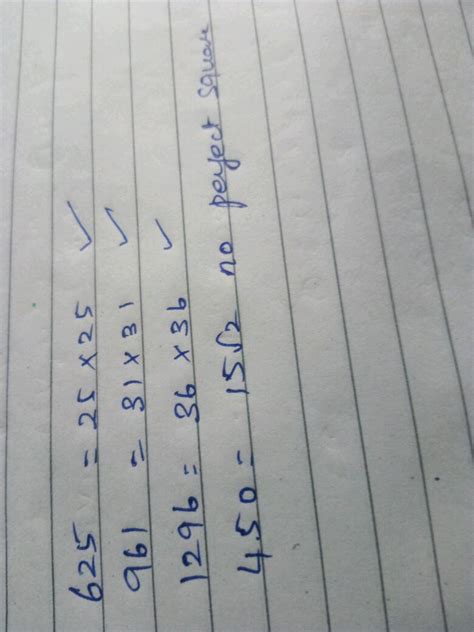 625 = 25 x 25 ✓
961 = 31 x 31 ✓
1296 = 36 x 36 ✓
450 - 15√2 no perfect square